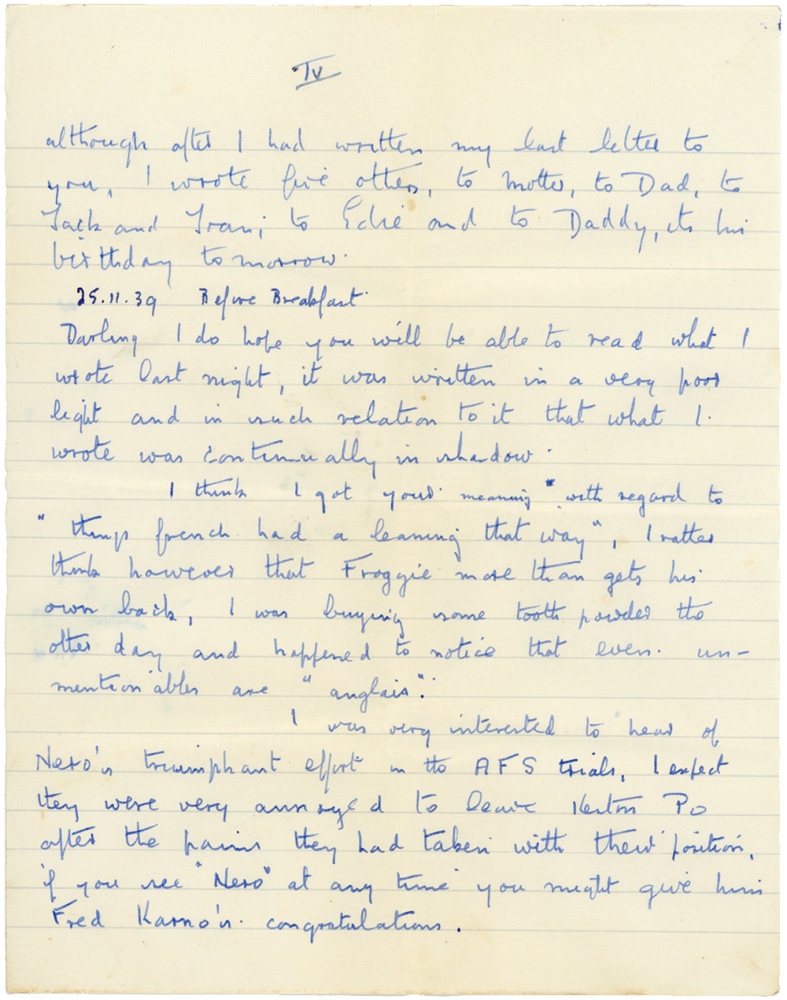 IV
although after I had written my last letter to
you, I wrote five others, to Mother, to Dad, to
Jack and Joan; to Edie and to Daddy, its his
birthday tomorrow.
25.11.39 Before Breakfast.
Darling I do hope you will be able to read what I
wrote last night, it was written in a very poor
light and in such relation to it that what I
wrote was continually in shadow.
I think I got your meaning "with regard to
"things french had a leaning that way", I rather
think however that Froggie more than gets his
own back, I was buying some tooth powder the
other day and happened to notice that even un-
mentionables are "anglais".
I was very interested to hear of
Nero's triumphant effort in the AFS trials, I expect
they were very annoyed to leave Po
after the pains they had taken with their position,
if you see "Nero" at any time you might give him
Fred Karno's congratulations.